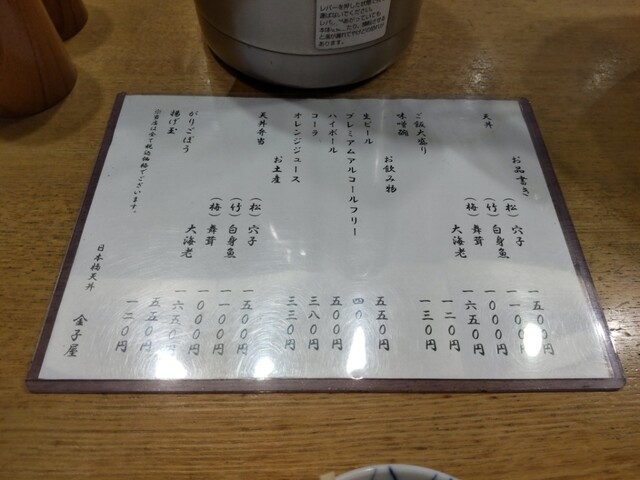 お品書き
天丼 （松） 穴子 一五〇〇円
（竹） 白身魚 一一〇〇円
（梅） 舞茸 一〇〇〇円
大海老 一六五〇円
ご飯大盛り 一二〇円
味噌碗 一三〇円
お飲み物
生ビール 五五〇円
プレミアムアルコールフリー 四〇
ハイボール 五〇〇円
コーラ 三八〇円
オレンジジュース 三三〇円
お土産
天丼弁当 （松） 穴子 一五〇〇円
（竹） 白身魚 一一〇〇円
（梅） 舞茸 一〇〇〇円
大海老 一六五〇円
がりごぼう 五五〇円
揚げ玉 一二〇円
◎当店は全て税込価格でございます。
日本橋天丼 金子屋